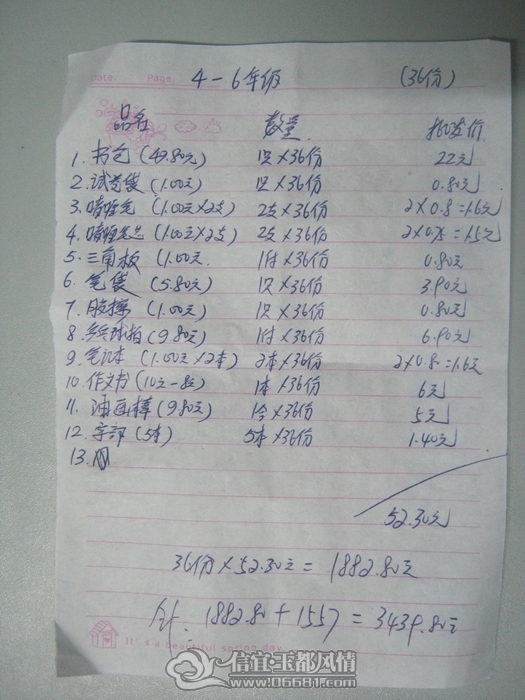 Date. Page.
4-6年级 (36份)
品名 数量 批发价
1. 书包 (49.80元) 1只×36份 22元
2. 试卷袋 (1.00元) 1只×36份 0.80元
3. 啫喱笔 (1.00元×2支) 2支×36份 2×0.8=1.6元
4. 啫喱笔芯 (1.00元×2支) 2支×36份
5. 三角板 (1.00元. 1付×36份 0.80元
6. 笔袋 (5.80元) 1只×36份 3.90元
7. 胶擦 (1.00元) 1只×36份 0.80元
8. 兵乓球拍 (9.80元) 1付×36份 6.90元
9. 笔记本 (1.00元×2本) 2本×36份 2×0.8=1.6元
10. 作文书 (10元-8元) 1本×36份 6元
11. 油画棒 (9.80元) 1合×36份 5元
12. 字部 (5本) 5本×36份 1.40元
13.
52.30元
36份×52.30元=1882.80元
合计: 1882.80+1557=3439.80元
It's a beautiful spring day
信宜玉都风情
www.06681.com